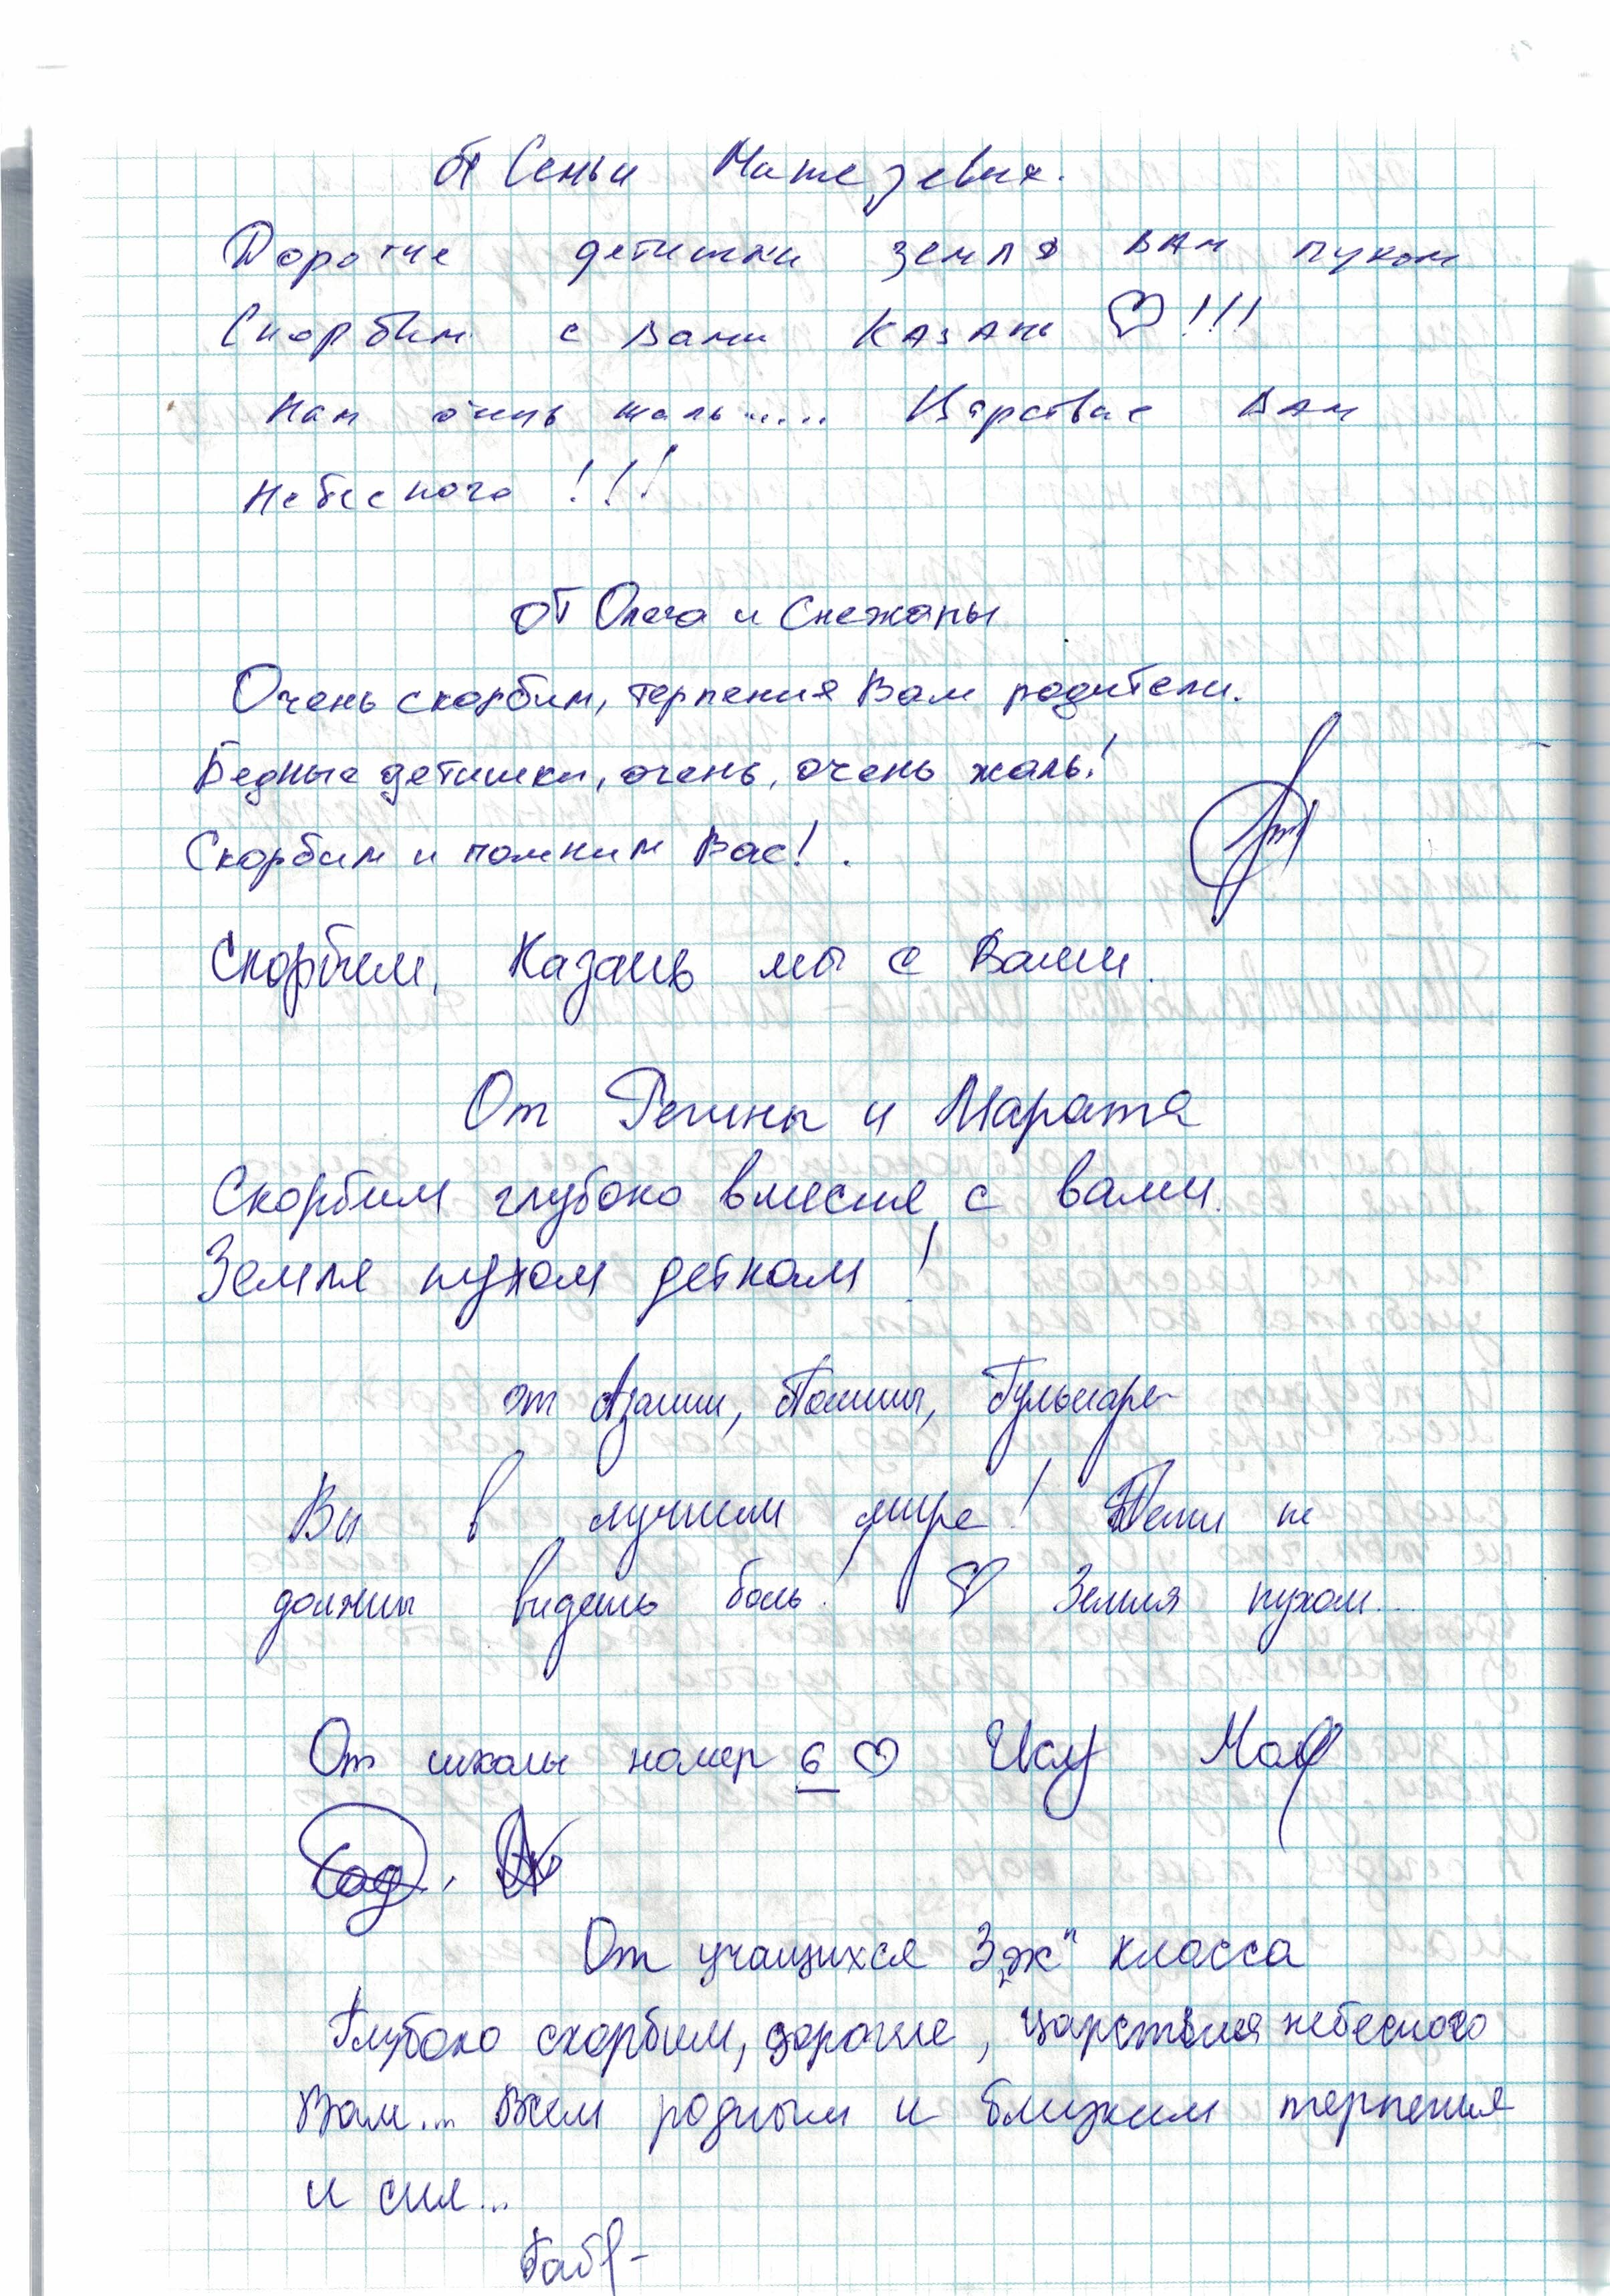 от Семьи
Дорогие детишки земля вам пухом
Скорбим с Вами Казань ♡!!!
Нам очень жаль..... Царствие Вам
Небесного !!!
от Олега и Снежаны
Очень скорбим, терпения Вам родители.
Бедные детишки, очень, очень жаль!
Скорбим и помним Вас! .
Скорбим, Казань мы с Вами.
От Регины и Марата
Скорбим глубоко вместе с вами.
Земля пухом деткам !
от Полины,
Вы в лучшем мире! не
должны видеть боль! ♡ Земля пухом...
От школы номер 6 ♡
От учащихся 3„ж" класса
Глубоко скорбим, дорогие, царствия небесного
Вам... Всем родным и близким терпения
и сил...